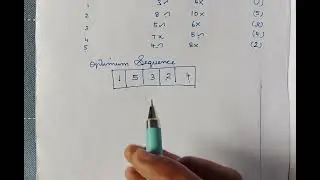 1 3↗ 6x (1)
2 8↗ 10x (5)
3 5↗ 6x (3)
4 7x 5↗ (4)
5 4↗ 8x (2)
Optimum Sequence
1 5 3 2 4